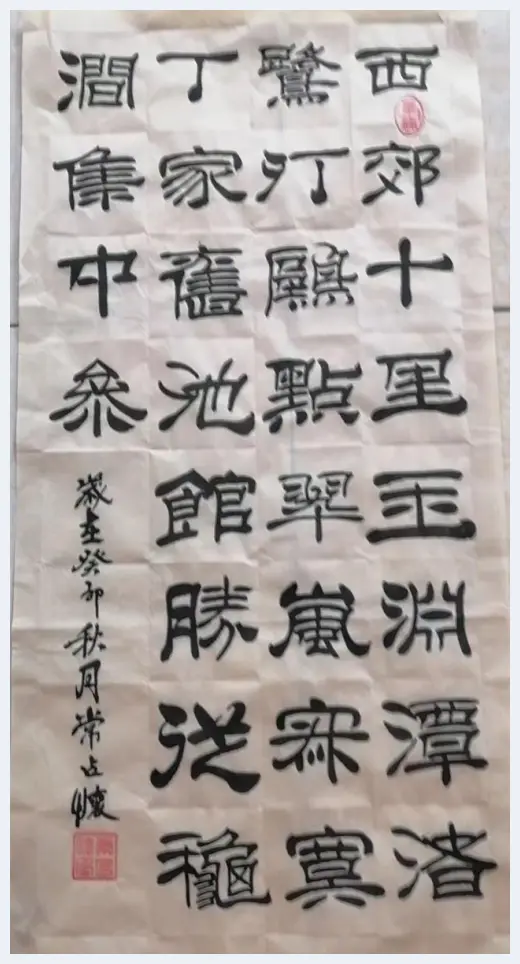 西郊十里玉淵潭渚
鷺汀鷗點翠嵐寂寞
丁家舊池館勝從穐
澗集中參
歲在癸卯秋月常占懷